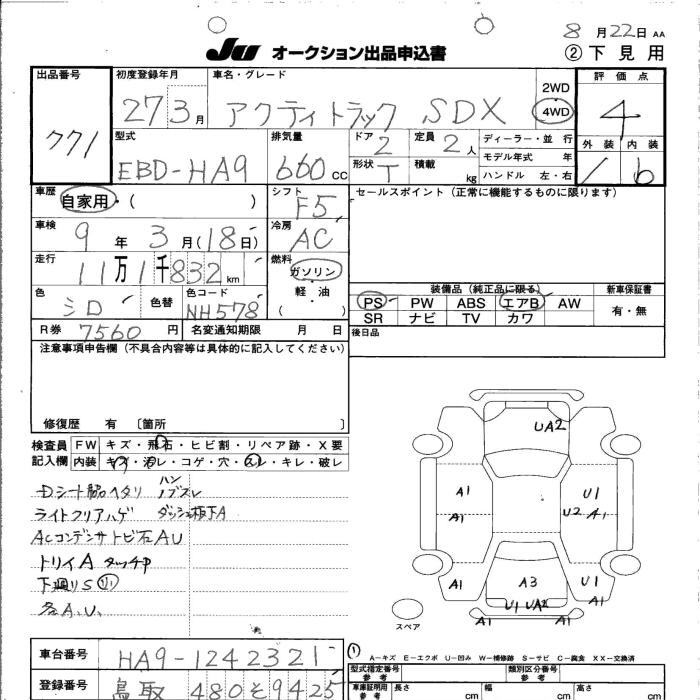 8 月 22 日 AA
JU オークション出品申込書
② 下 見 用
出品番号 771
初度登録年月 27 3 月
車名・グレード アクティトラック SDX
2WD
4WD
評 価 点 4
外 装 内 装
b
型式 EBD-HA9
排気量 660 CC
ドア 2
定員 2 人
形状 T
積載 kg
ディーラー・並 行
モデル年式 年
ハンドル 左・右
車歴 自家用・( )
シフト F5
セールスポイント (正常に機能するものに限ります)
車検 9 年 3 月(18日)
冷房 AC
走行 11万1千832 km
燃料 ガソリン
軽・油
( )
色 シロ
色替
色コード NH578
R券 7560 円
名変通知期限 月 日
装備品 (純正品に限る)
新車保証書
PS PW ABS エアB AW
SR ナビ TV カワ
有・無
後日品
注意事項申告欄 (不具合内容等は具体的に記入してください)
修復歴 有 〔箇所 〕
検査員記入欄
FW キズ・飛石・ヒビ割・リペア跡・X要
内装 キズ・汚レ・コゲ・穴・スレ・キレ・破レ
ライトクリアハゲ
ACコンデンサトビ石AU
トリイA
下廻りS
各A.U.
UA2
A1
A1
U1
U2 A1
A1
A3
U1
U1 UA2
A1
A1
A1
スペア
A-キズ E-エクボ U-凹み W-補修跡 S-サビ C-腐食 XX-交換済
車台番号 HA9-1242321
登録番号 鳥取 480 そ 9425
型式指定番号
参 考
類別区分番号
参 考
車庫証明用
参 考
長さ cm
幅 cm
高さ cm